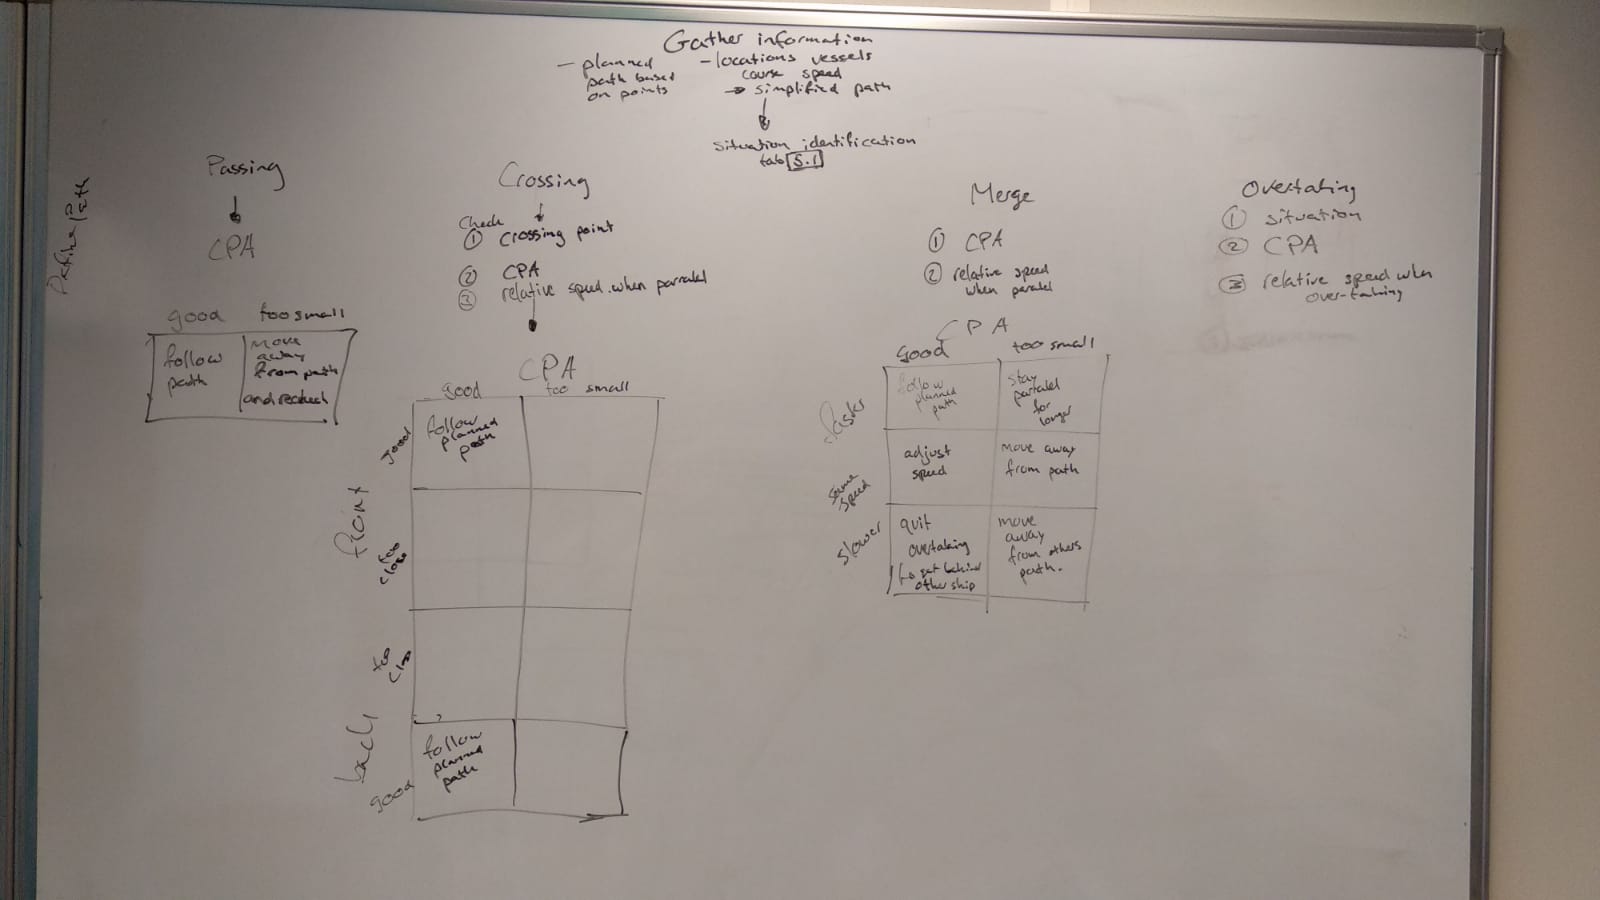 Gather information
- planned
path based
on points
- locations vessels
course speed
→ simplified path
Situation identification
tab 5.1
Define path
Passing
CPA
good too small
follow
path
move
away
from path
and recheck
Crossing
Check
① crossing point
② CPA
③ relative speed when parralel
CPA
good too small
front
good
follow
planned
path
too
close
back
too
close
good
follow
planned
path
Merge
① CPA
② relative speed
when paralel
CPA
good too small
faster
follow
planned
path
stay
parralel
for
longer
same
speed
adjust
speed
move away
from path
slower
quit
overtaking
to get behind
other ship
move
away
from others
path.
Overtaking
① situation
② CPA
③ relative speed when
over-taking